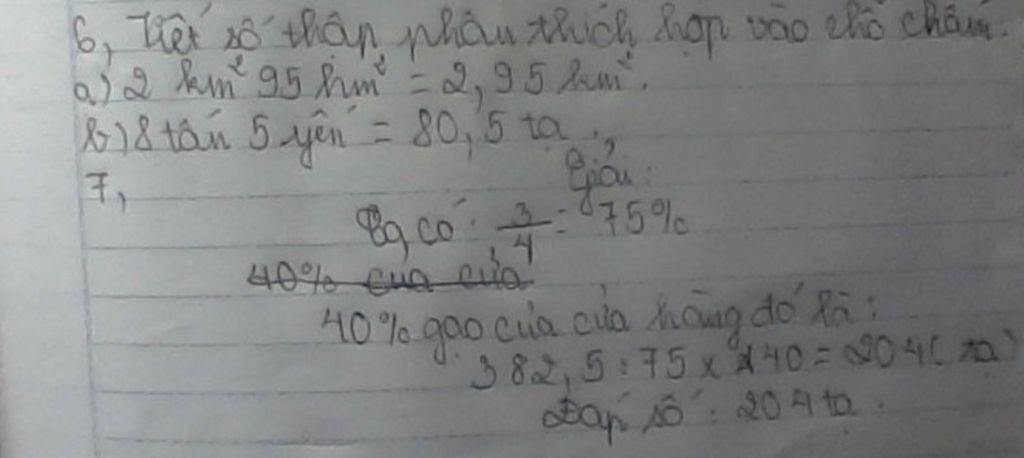 6, Viết số thập phân thích hợp vào chỗ chấm.
a) 2 km² 95 hm² = 2,95 km².
b) 8 tấn 5 yến = 80,5 tạ.
7, Giải:
Ta có: 3/4 = 75%
40% của cửa
40% gạo của cửa hàng đó là:
382,5 : 75 x 40 = 204 (tạ)
Đáp số: 204 tạ.